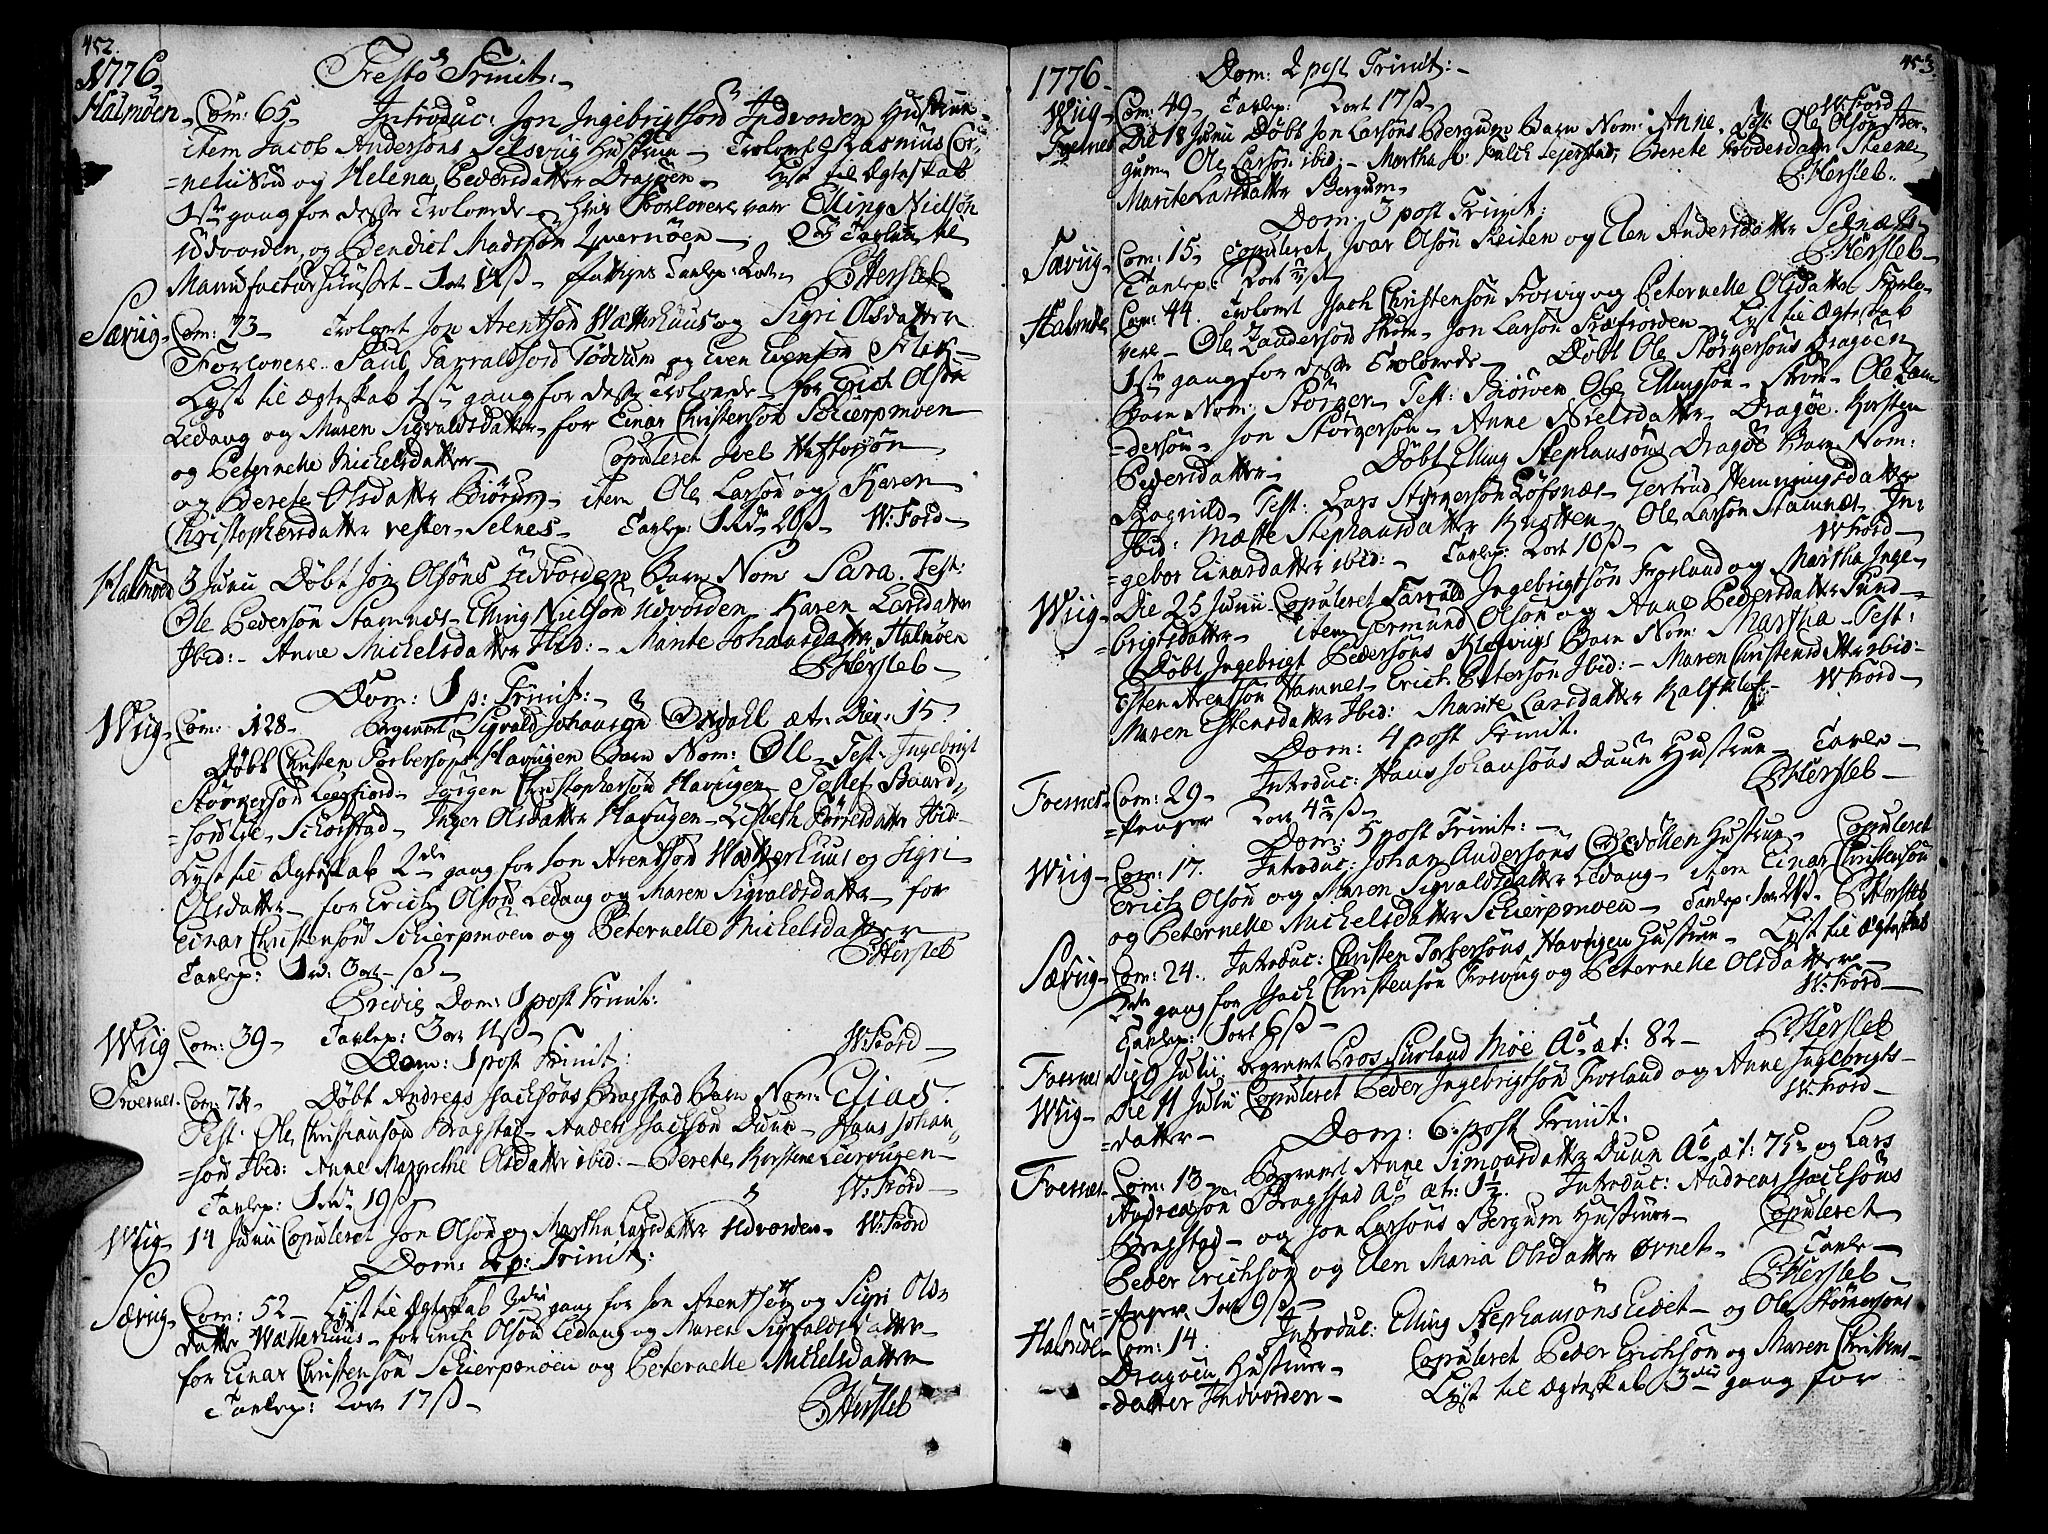 452.
1776. Festo Trinit:
Halmöen Com: 65. Introduc: Jon Ingebrigtsons Indvorden Hustrue
item Jacob Andersons Selsviig Hustrue Trolovet Rasmus Cor-
neliison og Helena Pedersdatter Dragöen Lyst til Ægteskab
1ste gang for desse Trolovede hvis Forlovere var Elling Nielsön
Udvorden, og Bendict Madssön Qvernöen Tavlep: til
Manufacturhuuset PHersleb
Sæviig Com: 73 Trolovet Jon Arentsön Watterhuus og Sigri Olsdatter
Forlovere Paul Tarraldsön og Even Evensön
Lyst til Ægteskab 1ste gang for desse Trolovede for Erich Olsön
Ledang og Maren Sigvaldsdatter for Einar Christensön Schierpmoen
og Peternelle Michelsdatter Copuleret Joel Haftorsön
og Berete Olsdatter Biörum item Ole Larsön og Karen
Christophersdatter Vester-Selnes Tavlep: 20ß W:Ford
Halmöe 3 Junii Döbt Jon Olsöns Udvorden Barn Nom: Sara. Test:
Ole Pedersön Stamnes Elling Nielsön Udvorden Karen Larsdatter
Ibid: Anne Michelsdatter Ibid: Marite Johansdatter Halmöen
PHersleb
Dom: 1 p: Trinit:
Wiig Com: 128 Begravet Sigvald Johansön æt: Dier: 15.
Döbt Christen Torbersöns Havügen Barn Nom: Ole Test: Ingebrigt
Störgersön Leerfiord Jörgen Christophersön Havügen Tollef Baard-
sön Schorstad Inger Olsdatter Havügen Lisbeth Ibid:
Lyst til Ægteskab 2den gang for Jon Arentsön Watterhuus og Sigri
Olsdatter for Erich Olsön Ledang og Maren Sigvaldsdatter for
Einar Christensön Schierpmoen og Peternelle Michelsdatter
Tavlep: PHersleb
Dom: 1 post Trinit:
Wiig Com: 39 Tavlep: 3 ort 11ß W:Ford
Dom: 1 post Trinit:
Foernes Com: 74 Döbt Andreas Isachsöns Bragstad Barn Nom: Elias.
Test: Ole Christiansön Bragstad Anders Isachsön Duun Hans Johan-
sön Ibid: Anne Margrethe Olsdatter ibid: Berete Kirstine Leirvügen
Tavlep: 19ß W:Ford
Wiig 14 Junii Copuleret Jon Olsön og Martha Larsdatter Udvorden W:Ford
Dom: 2 p: Trinit:
Sæviig Com: 52 Lyst til Ægteskab 3die gang for Jon Arentsön og Sigri Ols-
datter Watterhuus for Erich Olsön Ledang og Maren Sigvaldsdatter
for Einar Christensön Schierpmöen og Peternelle Michelsdatter
Tavlep: 2 ort 17ß PHersleb
453.
1776 Dom: 2 post Trinit:
Wiig Com: 49 Tavlep: 2 ort 17ß W:Ford
Foernes Die 18 Junii Döbt Jon Larsöns Bergum Barn Nom: Anne. Test: Ole Olsön Ber-
gum Ole Larsön ibid: Martha Berete
Marite Larsdatter Bergum PHersleb.
Dom: 3 post Trinit:
Sæviig Com: 15 Copuleret Ivar Olsön Reiten og Elen Andersdatter Selnæs
Tavlep: PHersleb
Halmöe Com: 44. Trolovet Isach Christensön Froeviig og Peternelle Olsdatter Forlo-
vere Ole Zandersön Strom Jon Larsön Lyst til Ægteskab
1ste gang for desse Trolovede Döbt Ole Störgersöns Dragöen
Barn Nom: Störger Test: Ole Ellingsön Strom Ole Zan-
dersön Jon Störgersön Anne Nielsdatter Dragöe Kirsten
Pedersdatter Döbt Elling Stephansöns Dragöe Barn Nom:
Ragnild Test: Lars Störgersön Löfsnæs Gertrud Hemmingsdatter
Ibid: Mætte Stephansdatter Knotten Ole Larsön Stamnæs In-
gebor Einarsdatter ibid: Tavlep: 2 ort 10ß W:Ford
Wiig Die 25 Junii Copuleret Tarrald Ingebrigtsön Froeland og Martha Inge-
brigtsdatter item Germund Olsön og Anne Pedersdatter Sund
Döbt Ingebrigt Pedersöns Kleviigs Barn Nom: Martha Test:
Esten Arentsön Hamnes Erich Petersön Ibid: Maren Christensdatter ibid:
Maren Estensdatter Ibid: Marite Larsdatter Kalfkl W:Ford
Dom: 4 post Trinit.
Foernes Com: 29 Introduc: Hans Johansöns Duun Hustrue Tavle-
penger PHersleb
Dom: 5 post Trinit:
Wiig Com: 17. Introduc: Johan Andersöns Hustrue Copuleret
Erich Olsön og Maren Sigvaldsdatter Ledang item Einar Christensön
og Peternelle Michelsdatter Schierpmoen Tavlep: PHersleb
Sæviig Com: 24. Introduc: Christen Torbersöns Havügen Hustrue Lyst til Ægteskab
2den gang for Isach Christensön Froeviig og Peternelle Olsdatter
Tavlep: 1 ort 6ß W:Ford
PHersleb
Foernes Die 9 Julii begravet Möe Ao æt: 82
Wiig Die 11 Julii Copuleret Peder Ingebrigtsön Froeland og Anne Ingebrigts-
datter W:Ford
Dom: 6 post Trinit:
Foernes Com: 13 Begravet Anne Simonsdatter Duun Ao æt: 75 og Lars
Andreasön Bragstad Ao æt: 1½. Introduc: Andreas Isachsöns
Bragstad og Jon Larsöns Bergum Hustruer Copuleret
Peder Erichsön og Elen Maria Olsdatter Ørnet Tavle-
penger 1 ort 9ß PHersleb
Halmöe Com: 14. Introduc: Elling Stephansöns Eidet og Ole Störgersöns
Dragöen Hustruer Copuleret Peder Erichsön og Maren Christens-
datter Indvorden Lyst til Ægteskab 3die gang for